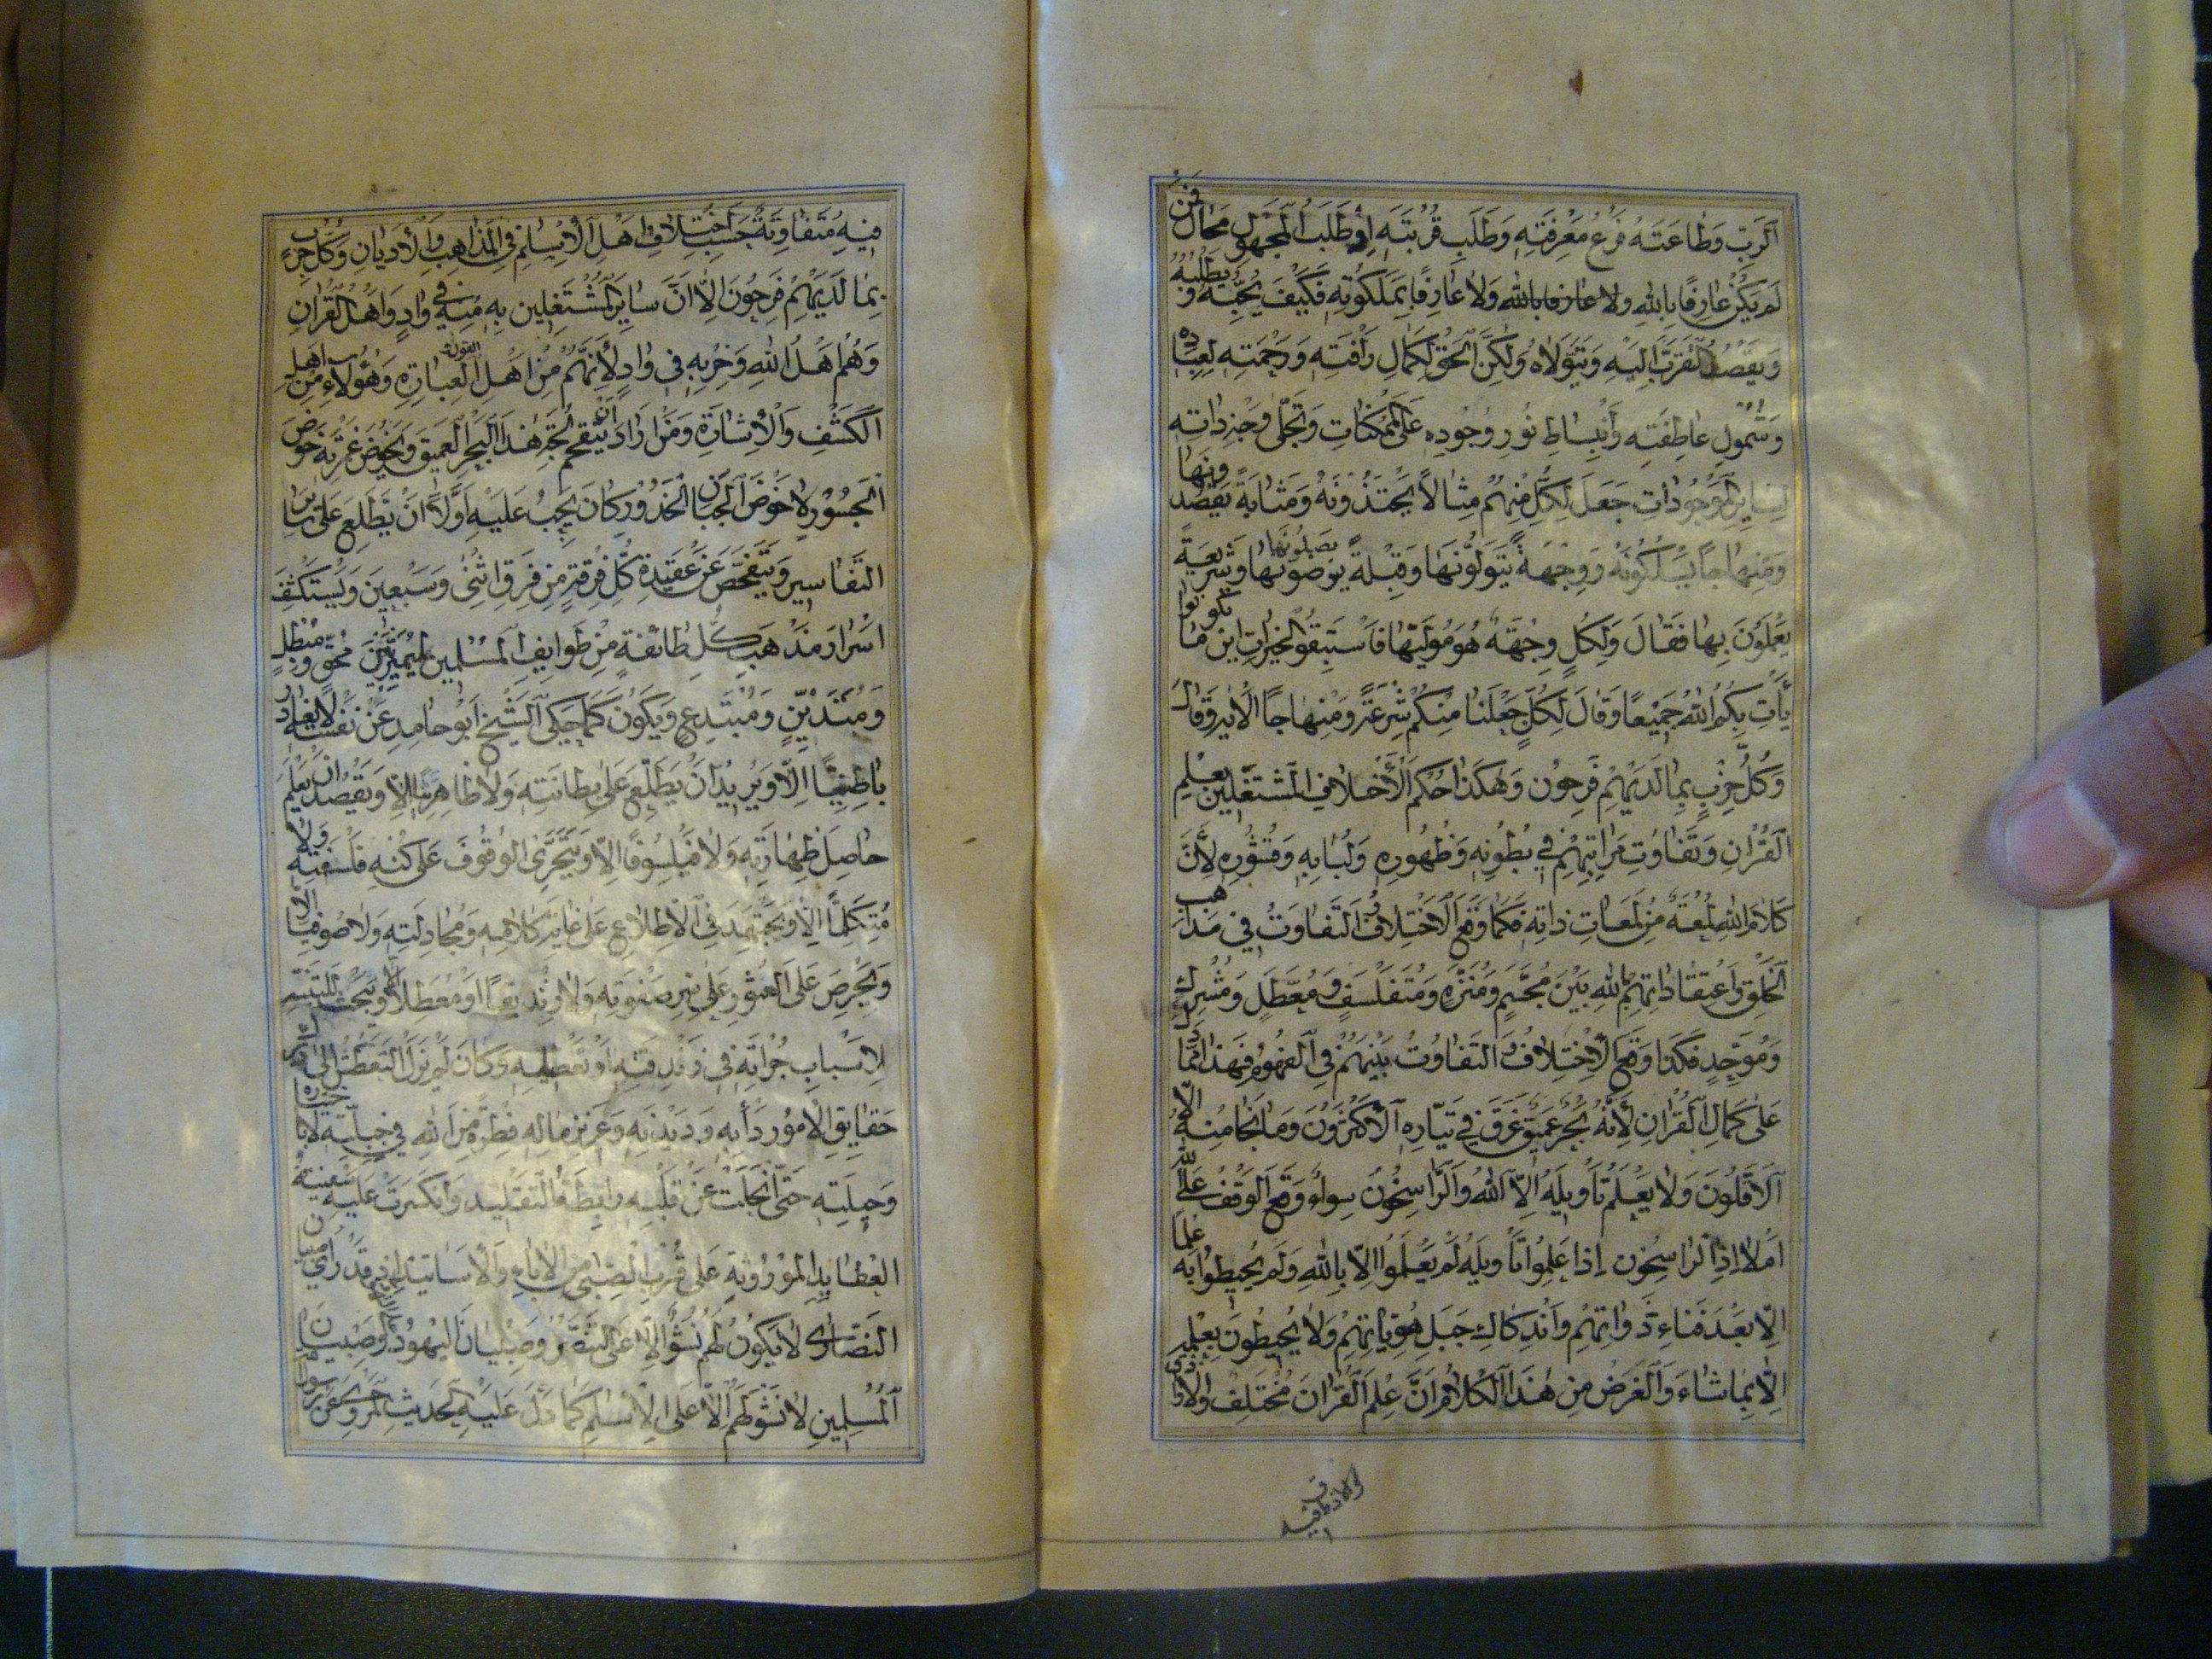 الرب وطاعته فرع معرفته وطلب قربته اذ طلب المجهول محال فمن
لم يكن عارفا بالله ولا عارفا بالله ولا عارفا بملكوته فكيف يحبه ويطلبه
ويقصد التقرب اليه ويتولاه ولكن الحق لكمال رأفته ورحمته لعباده
وشمول عاطفته وانبساط نور وجوده على الممكنات وتجلى وجه ذاته
لساير الموجودات جعل لكل منهم مثالا يحتذونه ومثابة يقصدونها
ومنهاجا يسلكونه ووجهة يتولونها وقبلة يرضونها يصلونها وشريعة
يعملون بها فقال ولكل وجهة هو موليها فاستبقوا الخيرات اين ما تكونوا
يأت بكم الله جميعا وقال لكل جعلنا منكم شرعة ومنهاجا الاية وقال
وكل حزب بما لديهم فرحون وهكذا حكم الاختلاف المشتغلين بعلم
القران وتفاوت مراتبهم في بطونه وظهوره ولبابه وقشوره لأن
كلام الله لمعة من لمعات ذاته فكما وقع الاختلاف والتفاوت في مذاهب
الخلق واعتقاداتهم بالله بين مجسم ومنزه ومتفلسف ومعطل ومشرك
وموحد فكذا وقع الاختلاف والتفاوت بينهم في الفهوم فهذا مما يدل
على كمال القران لأنه بحر عميق غرق في تياره الأكثرون وما نجا منه الا
الاقلون ولا يعلم تأويله الا الله والراسخون سواء وقع الوقف على الله
ام لا اذ الراسخون اذا علموا تأويله لم يعلموا الا بالله ولم يحيطوا به علما
الا بعد فناء ذواتهم واندكاك جبل هوياتهم ولا يحيطون بعلمه
الا بما شاء والغرض من هذا الكلام ان علم القران مختلف والاذواق
والاذواق فيه
فيه متفاوتة حسب اختلاف اهل الاسلم في المذاهب والأديان وكل حزب
بما لديهم فرحون الا ان ساير المشتغلين به منه في واد واهل القران
وهم اهل الله وحزبه في واد لأنهم من اهل القول العبارة وهؤلاء من اهل
الكشف والاشارة ومن اراد ان يتقحم لجة هذا البحر العميق ويخوض غمرته خوض
الجسور لا خوض الجبان الحذور كان يجب عليه أولا ان يطلع على ساير
التفاسير ويتفحص عن عقيدة كل فرقة من فرق اثنى وسبعين ويستكشف
اسرار مذهب كل طائفة من طوايف المسلمين ليميز بين محق ومبطل
ومتدين ومبتدع ويكون كما حكى الشيخ ابو حامد عن نفسه لا يغادر
باطنيا الا ويريد ان يطلع على بطانته ولا ظاهريا الا ويقصد ان يعلم
حاصل ظهارته ولا فيلسوفا الا ويتحرى الوقوف على كنه فلسفته ولا
متكلما الا ويجتهد في الاطلاع على غاية كلامه ومجادلته ولا صوفيا الا
ويحرص على العثور على سر صفوته ولا زنديقا او معطلا الا ويبحث للتنبه
لاسباب جراته في زندقته او تعطيله وكان لم يزل التعطش الى درك
حقايق الامور دأبه وديدنه وغريزة ماله فطرة من الله في جبلته لا باختياره
وحيلته حتى انحلت عن قلبه رابطة التقليد وانكسرت عليه سفينة
العقايد الموروثة على قرب الصبى من الاباء والاساتيد اذ قد رأى صبيان
النصارى لا يكون لهم نشؤ الا على التنصر وصبيان اليهود وصبيان
المسلمين لا نشو لهم الا على الاسلم كما دل عليه الحديث المروى عن رسول